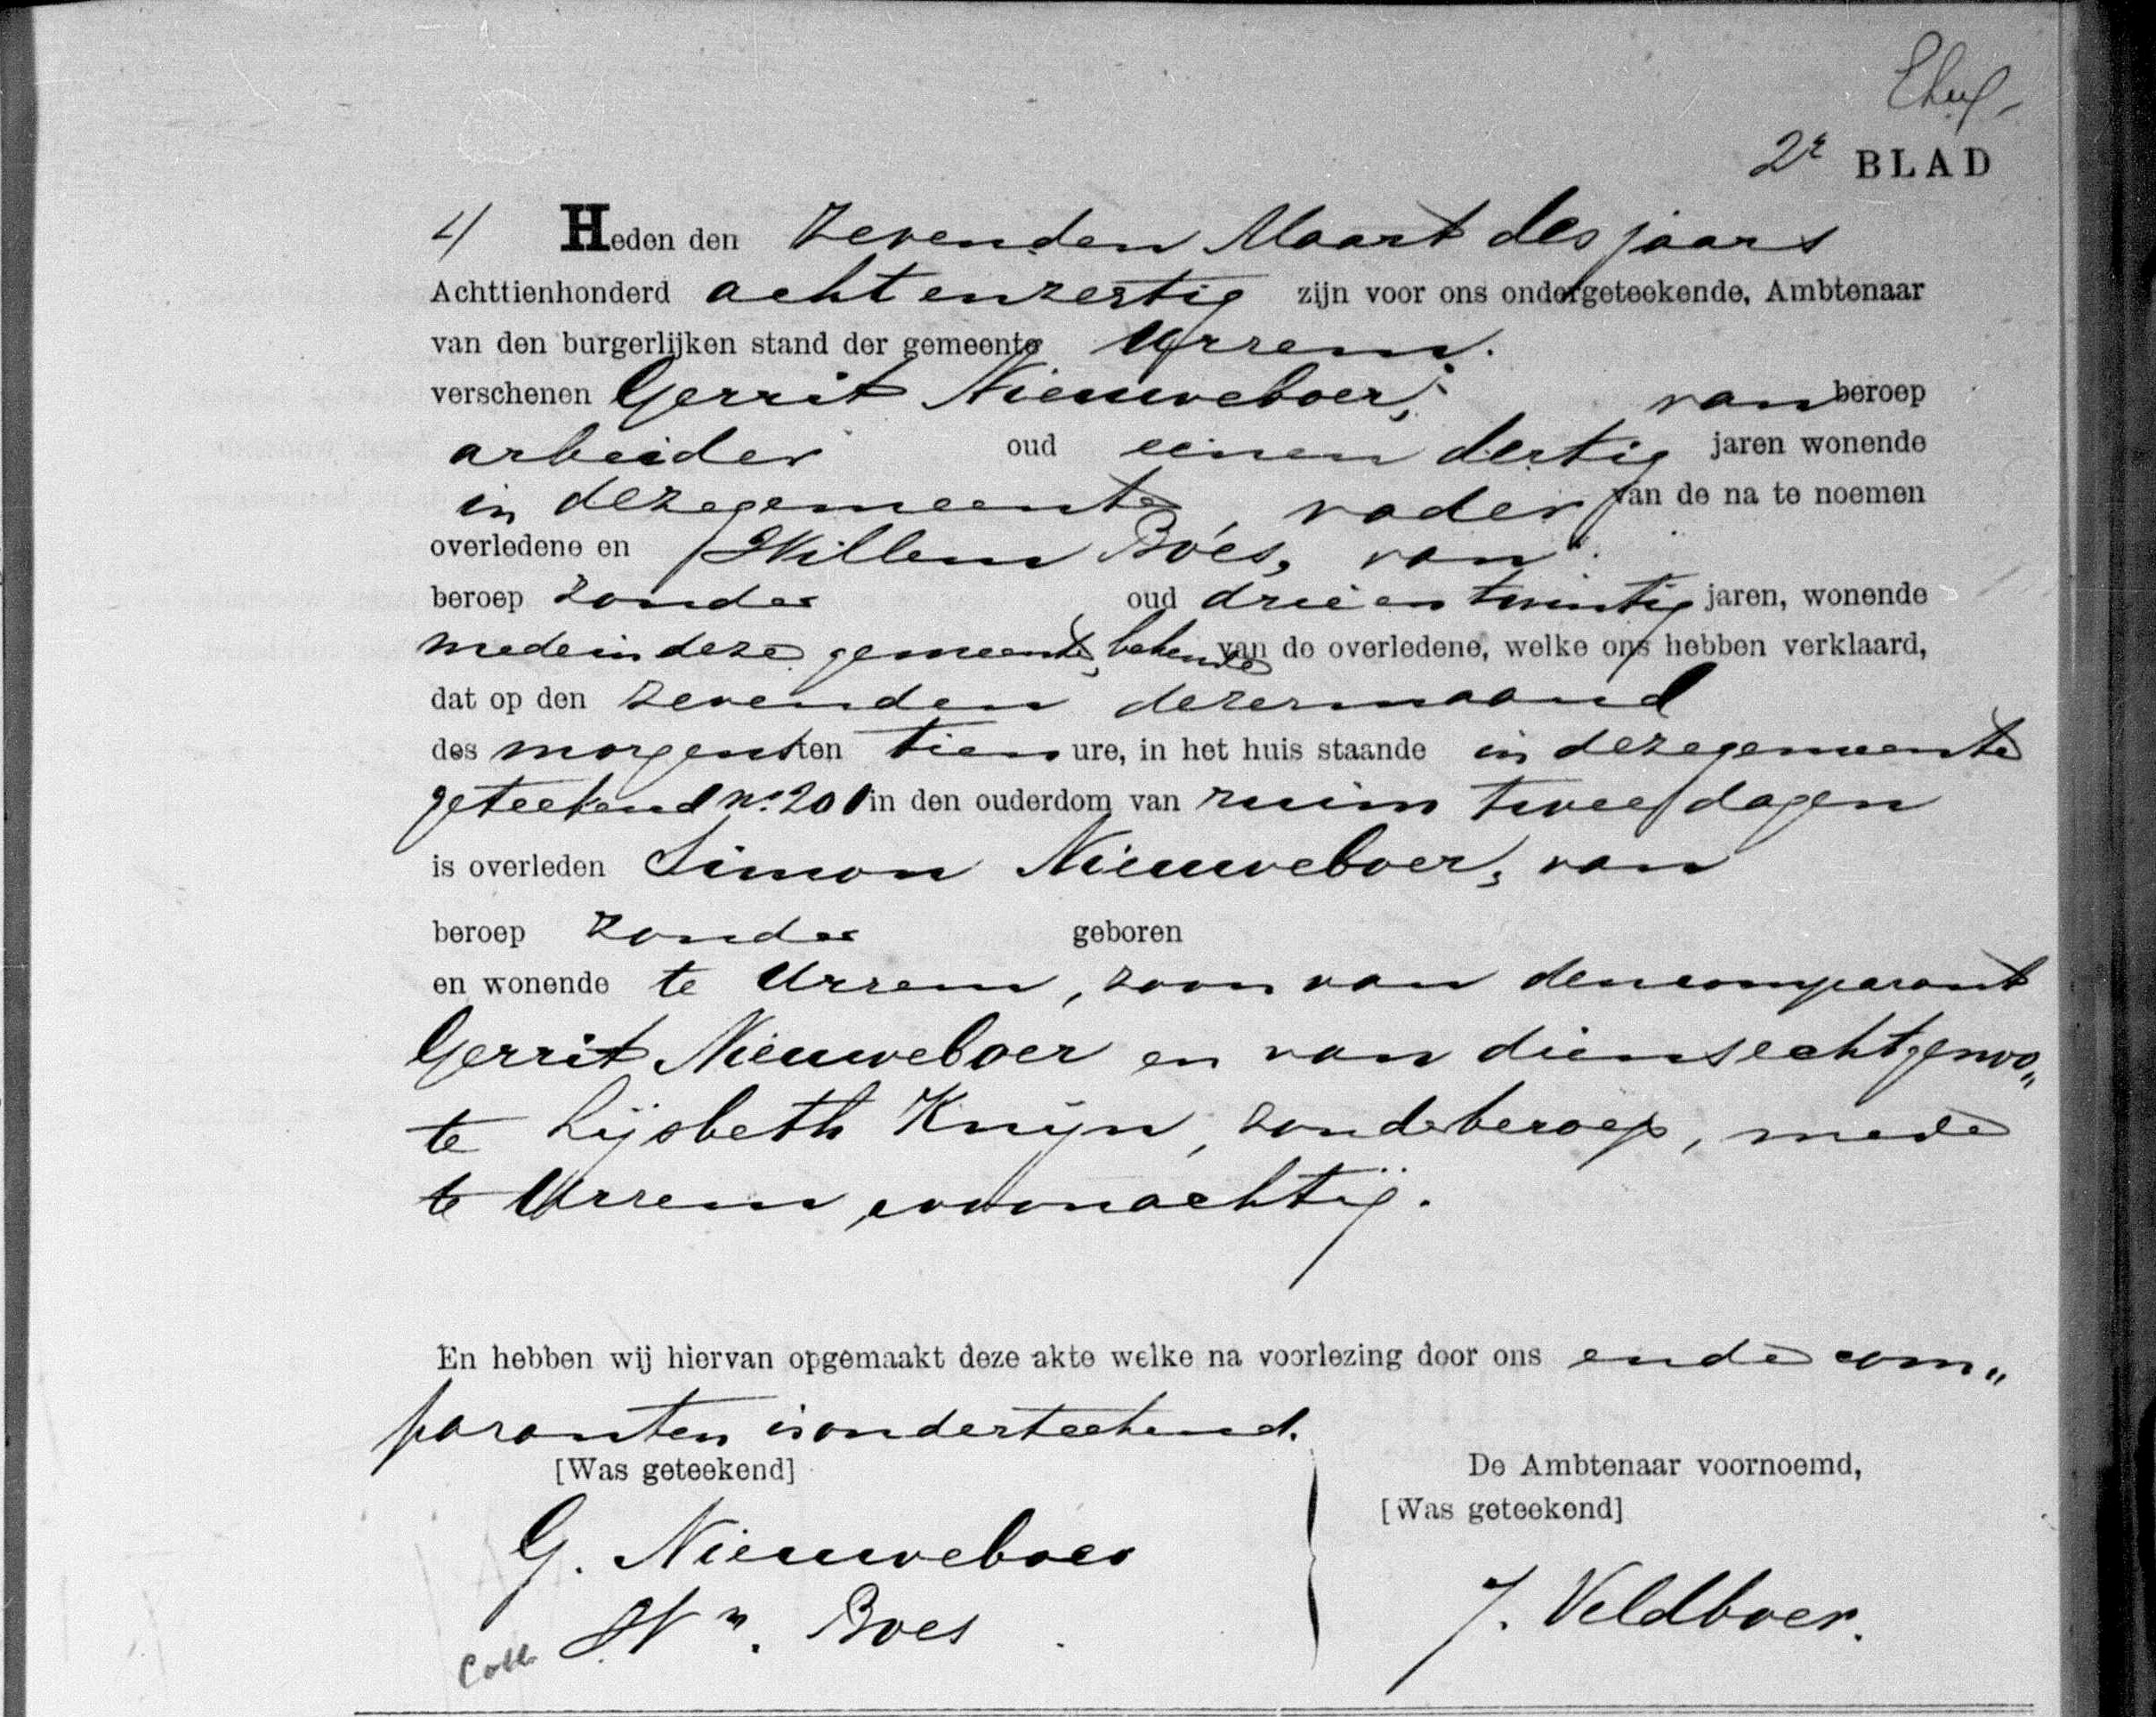 2e BLAD
4 Heden den zevenden Maart des jaars
Achttienhonderd achtenzestig zijn voor ons ondergeteekende, Ambtenaar
van den burgerlijken stand der gemeente Urzem.
verschenen Gerrit Nieuweboer, van beroep
arbeider oud eenen dertig jaren wonende
in deze gemeente, vader van de na te noemen
overledene en Willem Boes, van
beroep zonder oud drieentwintig jaren, wonende
mede in deze gemeente, bekende van de overledene, welke ons hebben verklaard,
dat op den zevenden dezer maand
des morgens ten tien ure, in het huis staande in deze gemeente
geteekend No. 20 in den ouderdom van ruim twee dagen
is overleden Simon Nieuweboer, van
beroep zonder geboren
en wonende te Urzem, zoon van den comparant
Gerrit Nieuweboer en van diens echtgenoo„
te Lijsbeth Knijn, zonder beroep, mede
te Urzem woonachtig.
En hebben wij hiervan opgemaakt deze akte welke na voorlezing door ons en de com„
paranten is onderteekend.
[Was geteekend] De Ambtenaar voornoemd,
[Was geteekend]
G. Nieuweboer
Wm. Boes J. Veldboer.
Coll